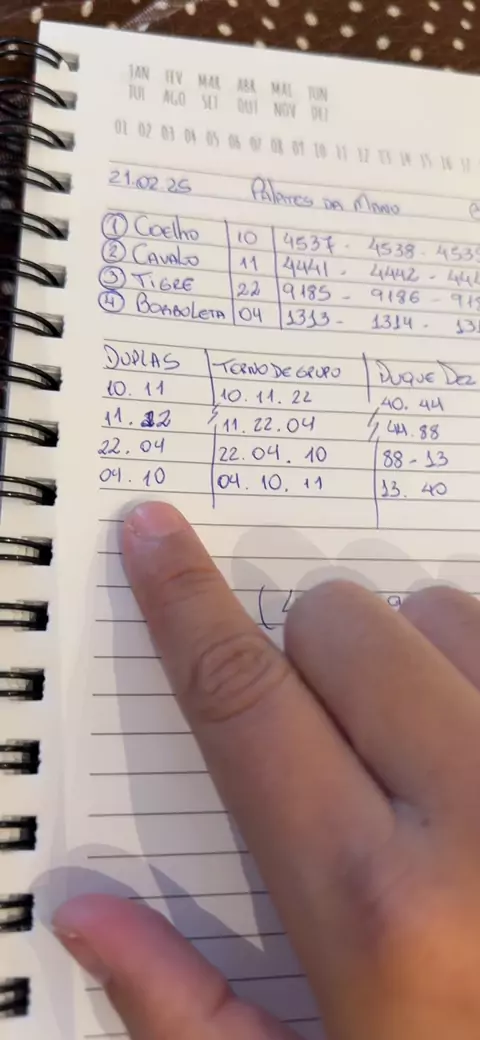 JAN FEV MAR ABR MAI JUN
JUL AGO SET OUT NOV DEZ
01 02 03 04 05 06 07 08 09 10 11 12 13 14 15 16 17
21.02.25 da Mano
① Coelho 10 4537 - 4538 - 4539
② Cavalo 11 4441 - 4442 - 444
③ Tigre 22 9185 - 9186 - 918
④ Borboleta 04 1313 - 1314 - 131
Duplas Terno de grupo Duque Dez
10. 11 10. 11. 22 40. 44
11. 22 11. 22. 04 44. 88
22. 04 22. 04. 10 88 - 13
04. 10 04. 10. 11 13. 40